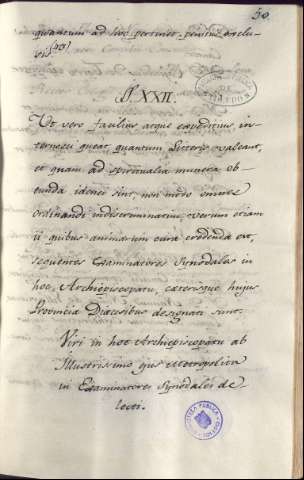 50
quantum ad hoc pertinet, penitus exclu-
§. XXII.
Ut vero facilius aeque expeditius in-
quantum Litteris valeant,
et quam ad spiritualia munera ob-
eunda idonei sint, non modo omnes
ordinandi indiscriminatim, verum etiam
ii quibus animarum cura credenda est,
sequentes Examinatores Synodales in
hoc Archiepiscopatu, caeterisque hujus
Provincia Dioecesibus designati sint.
Viri in hoc Archiepiscopatu ab
Illustrissimo ejus Metropolita
in Examinatores Synodales de-
lecti.